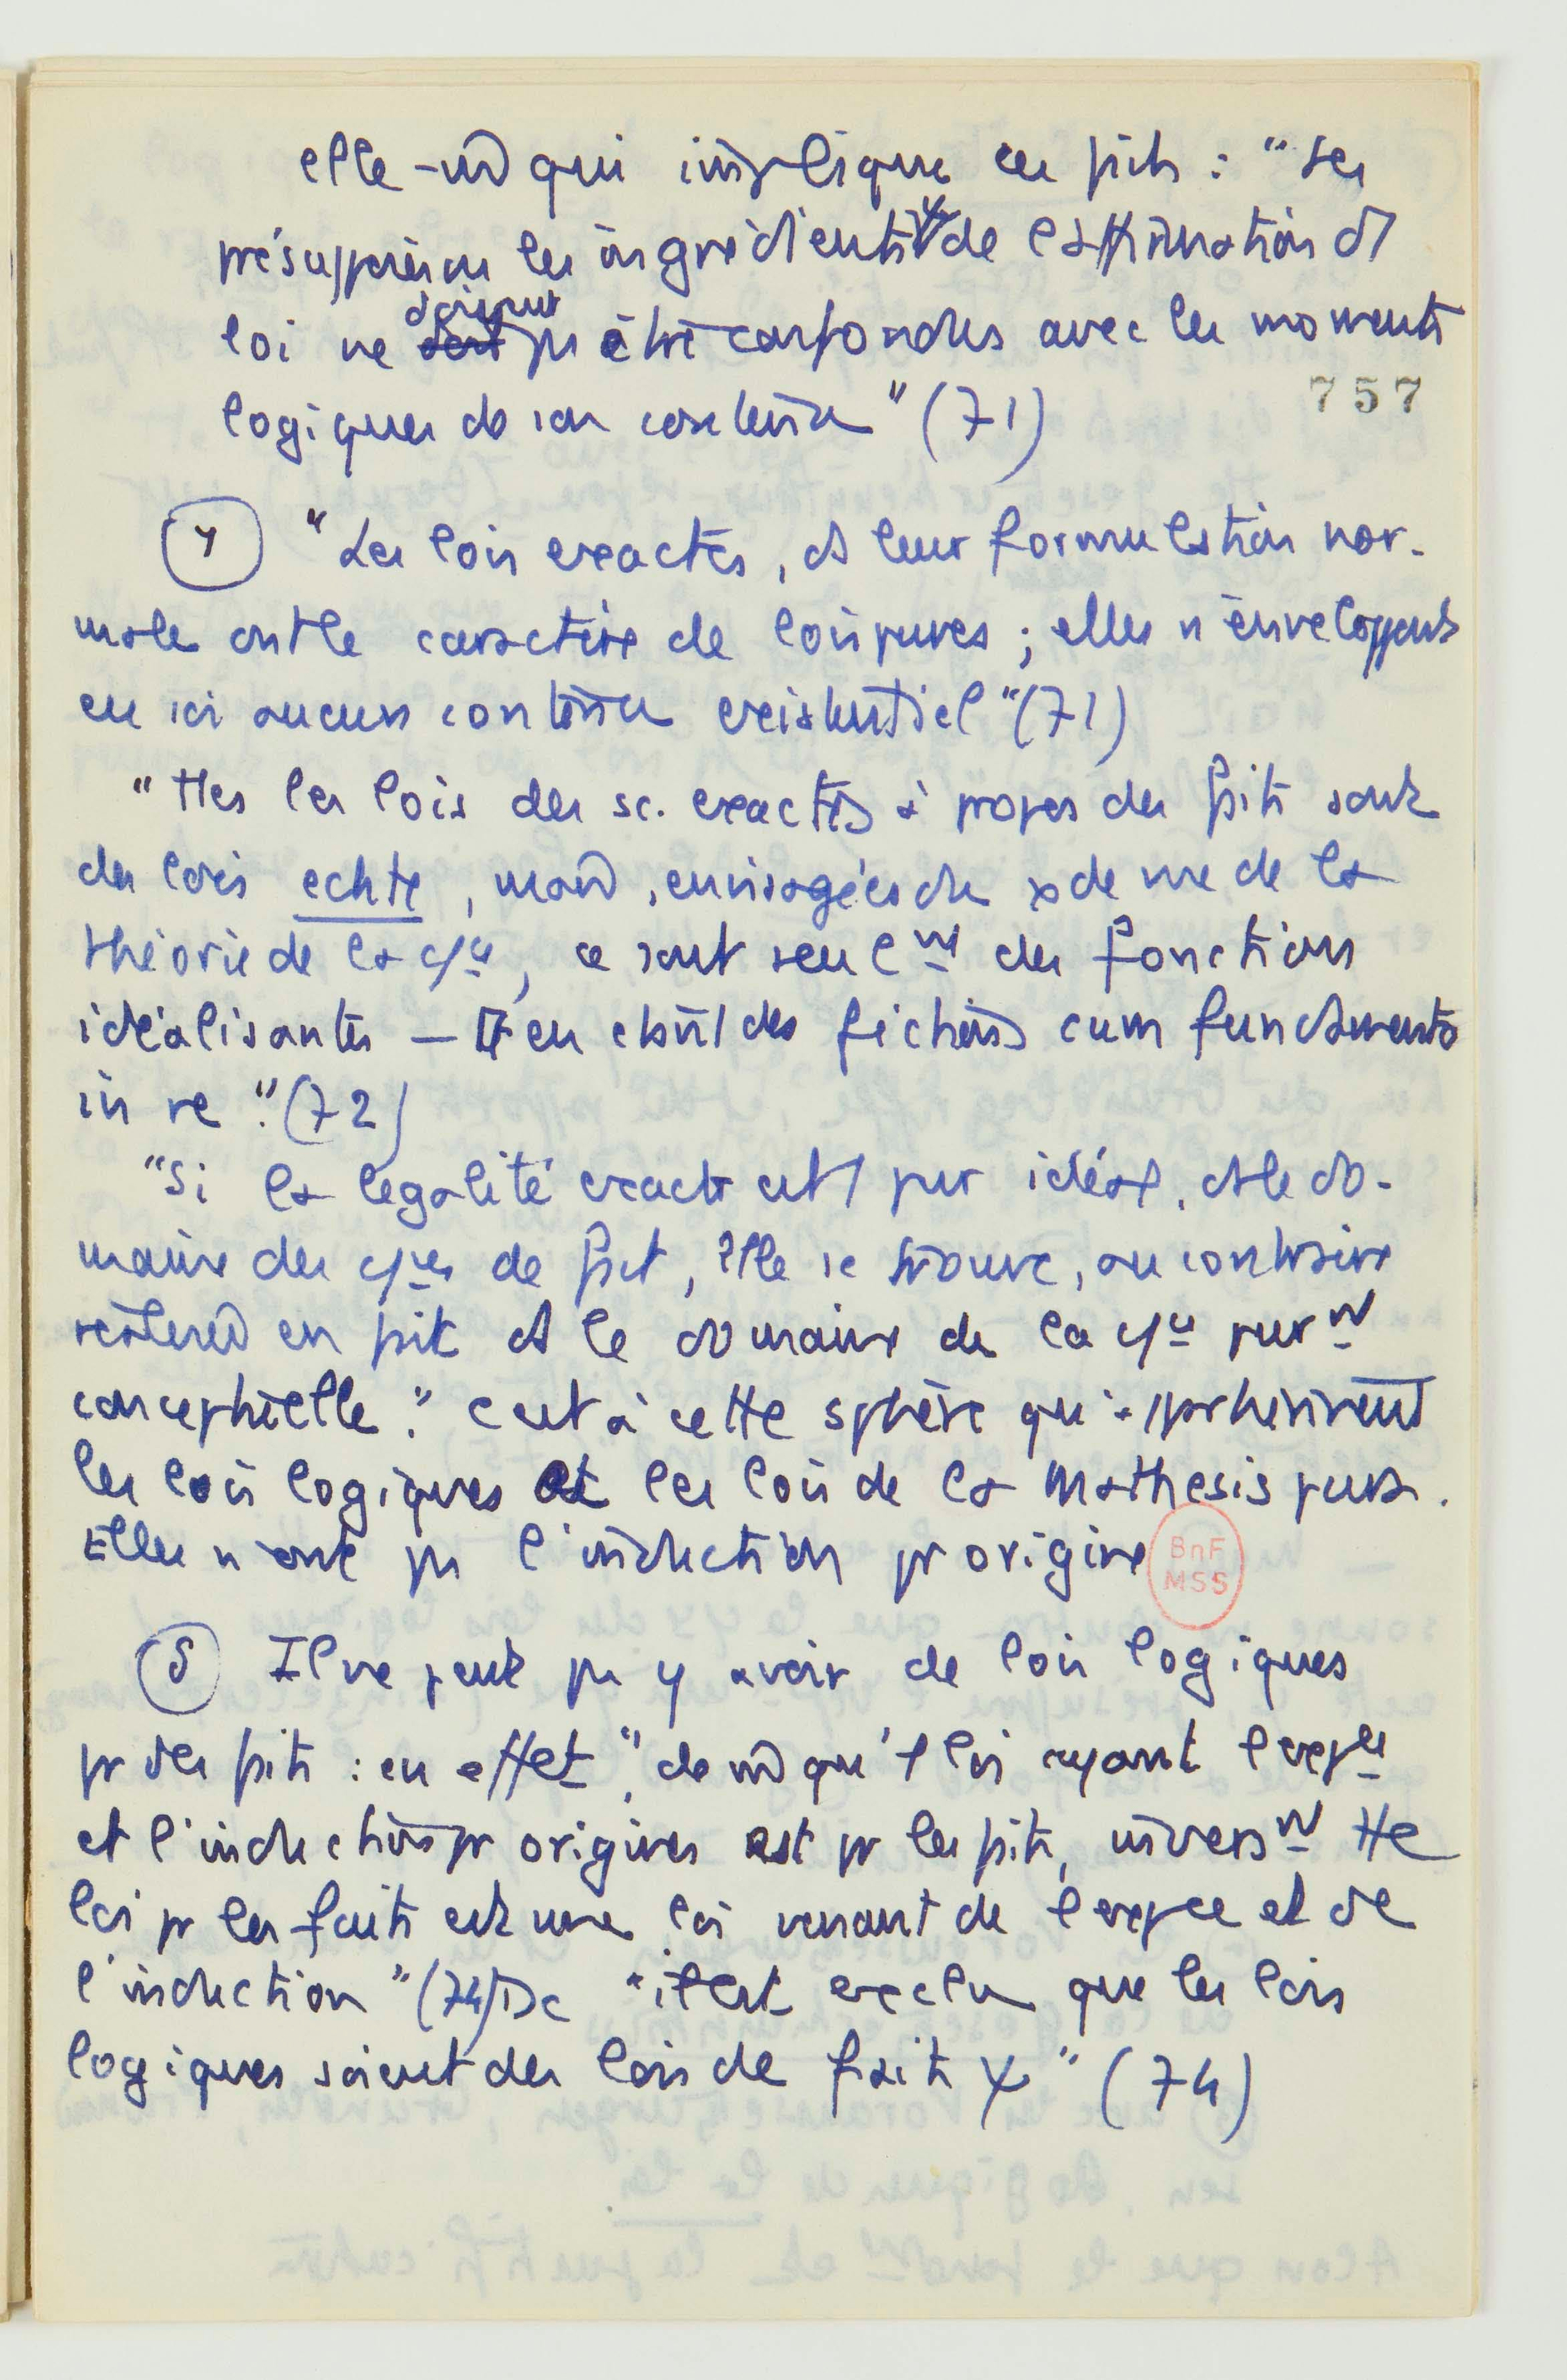 elle-m̂ qui implique ces faits : "les
présuppositions les ingrédients ψ de l'affirmation d'1
loi ne doivent pas être confondus avec les moments
logiques de son contenu" (71)
757
④ "Les lois exactes, ds leur formulation nor-
male ont le caractère de lois pures ; elles n'enveloppent
en soi aucun contenu existentiel" (71)
"Ttes les lois des sc. exactes à propos des faits sont
des lois echte, mais, envisagées du pt de vue de la
théorie de la cce, ce sont seult des fonctions
idéalisantes — des fictions cum fundamento
in re". (72)
"Si la légalité exacte est 1 pur idéal, ds le do-
maine des cces de fait, elle se trouve, au contraire
réalisée en fait ds le domaine de la cce purt
conceptuelle." C'est à cette sphère qu'appartiennent
les lois logiques et les lois de la Mathesis pure.
Elles n'ont pas l'induction pr origine
BnF
MSS
⑤ Il ne peut pas y avoir de lois logiques
pr des faits : en effet, "de m̂ qu'1 loi ayant l'expce
et l'induction pr origines est pr les faits, inverst tte
loi pr les faits est une loi venant de l'expce et de
l'induction" (74) Dc "il est exclu que les lois
logiques soient des lois de faits ψ" (74)